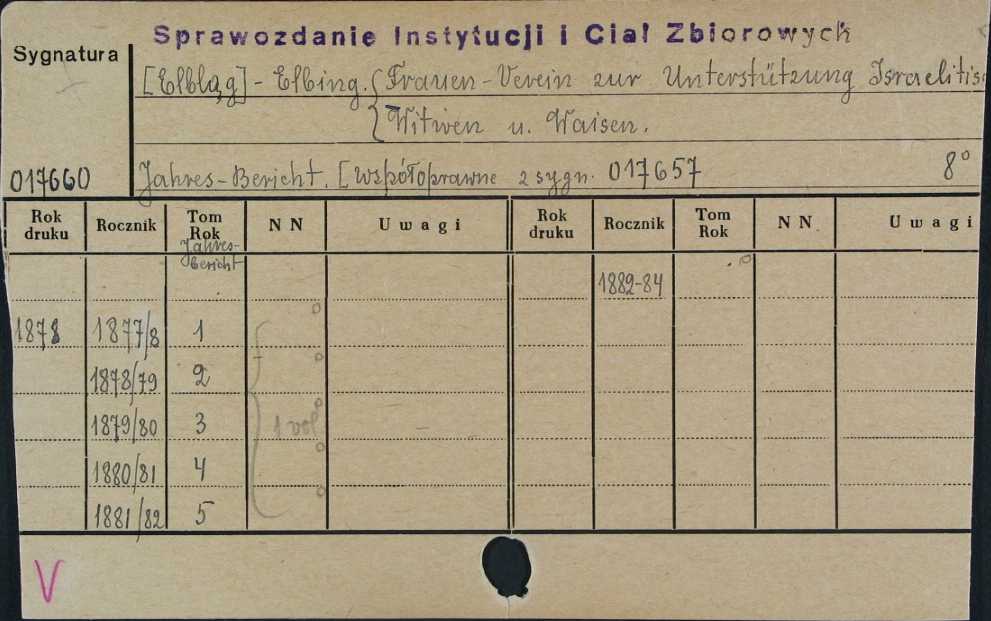 Sprawozdanie Instytucji i Ciał Zbiorowych
Sygnatura
[Elbląg] - Elbing. Frauen-Verein zur Unterstützung Israelitisc
Witwen u. Waisen.
017660 Jahres-Bericht. [współoprawne z sygn. 017657 8°
Rok druku Rocznik Tom Rok NN Uwagi Rok druku Rocznik Tom Rok NN Uwagi
Jahres-Bericht
1882-84
1878 1877/8 1
1878/79 2
1879/80 3 1 vol
1880/81 4
1881/82 5
V